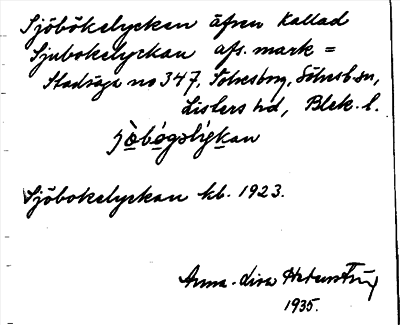 Sjöbokelyckan äfven kallad
Sjubokelyckan afs. mark =
Stadsäga no 347, Sölvesborg, Sölvesb. sn,
Listers hd, Blek. l.
Sjöbokelyckan kb. 1923.
Anna-Lisa
1935.